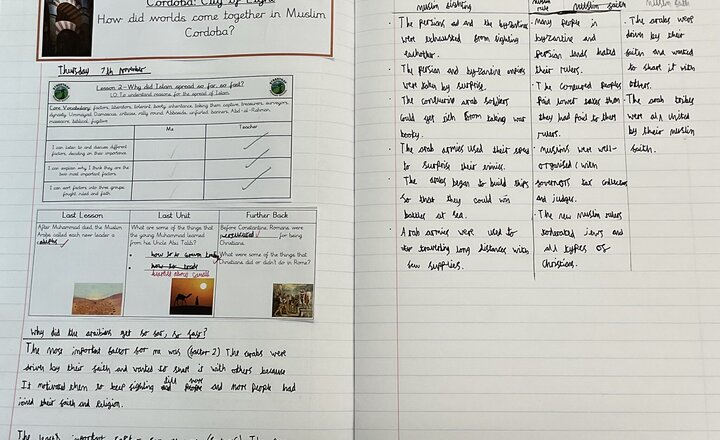 Cordoba: City of Light
How did worlds come together in Muslim
Cordoba?
Thursday 7th november
Lesson 2-Why did Islam spread so far so fast?
LO: To understand reasons for the spread of Islam.
Core Vocabulary: factors, liberators, tolerant, booty, inheritance, taking them captive, treasurers, surveyors,
dynasty, Ummayad, Damascus, criticise, rally round, Abbasids, unfurled banners, Abd-al-Rahman,
massacre, biblical, fugitive
Me
Teacher
I can listen to and discuss different
factors, deciding on their importance.
I can explain why I think they are the
two most important factors.
I can sort factors into three groups:
fought, ruled and faith.
Last Lesson
Last Unit
Further Back
After Muhammad died, the Muslim
Arabs called each new leader a
What are some of the things that
the young Muhammad learned
from his Uncle Abu Talib?
how to
how to trade
camels
Before Constantine, Romans were
persecuted for being
Christians.
What were some of the things that
Christians did or didn't do in Rome?
Why did the arabians get so far, so fast?
The most important factor for me was (factor 2) The arabs were
driven by their faith and wanted to share it with others because
It motivated them to keep fighting till more and more people had
joined their faith and religion.
muslim fighting
The persians and the byzantine
were exhausted from fighting
eachother.
The persian and byzantine empires
were taken by surprise.
The conquering arab soldiers
could get rich from taking war
booty.
The arab armies used their speed
to surprise their enimies.
The arabs began to build ships
so that they could win
battles at sea.
Arab armies were used to
travelling long distances with
few supplies.
muslim
rule
many people in
byzantine and
persian lands hated
their rulers.
The conquered peoples
paid lower taxes than
they had paid to their
rulers.
muslims were well-
organised (with
governors tax collectors
and judges.
The new muslim rulers
tolerated jews and
all types of
Christians.
muslim faith
The arabs were
driven by their
faith and wanted
to share it with
others.
The arab tribes
were all united
by their muslim
faith.